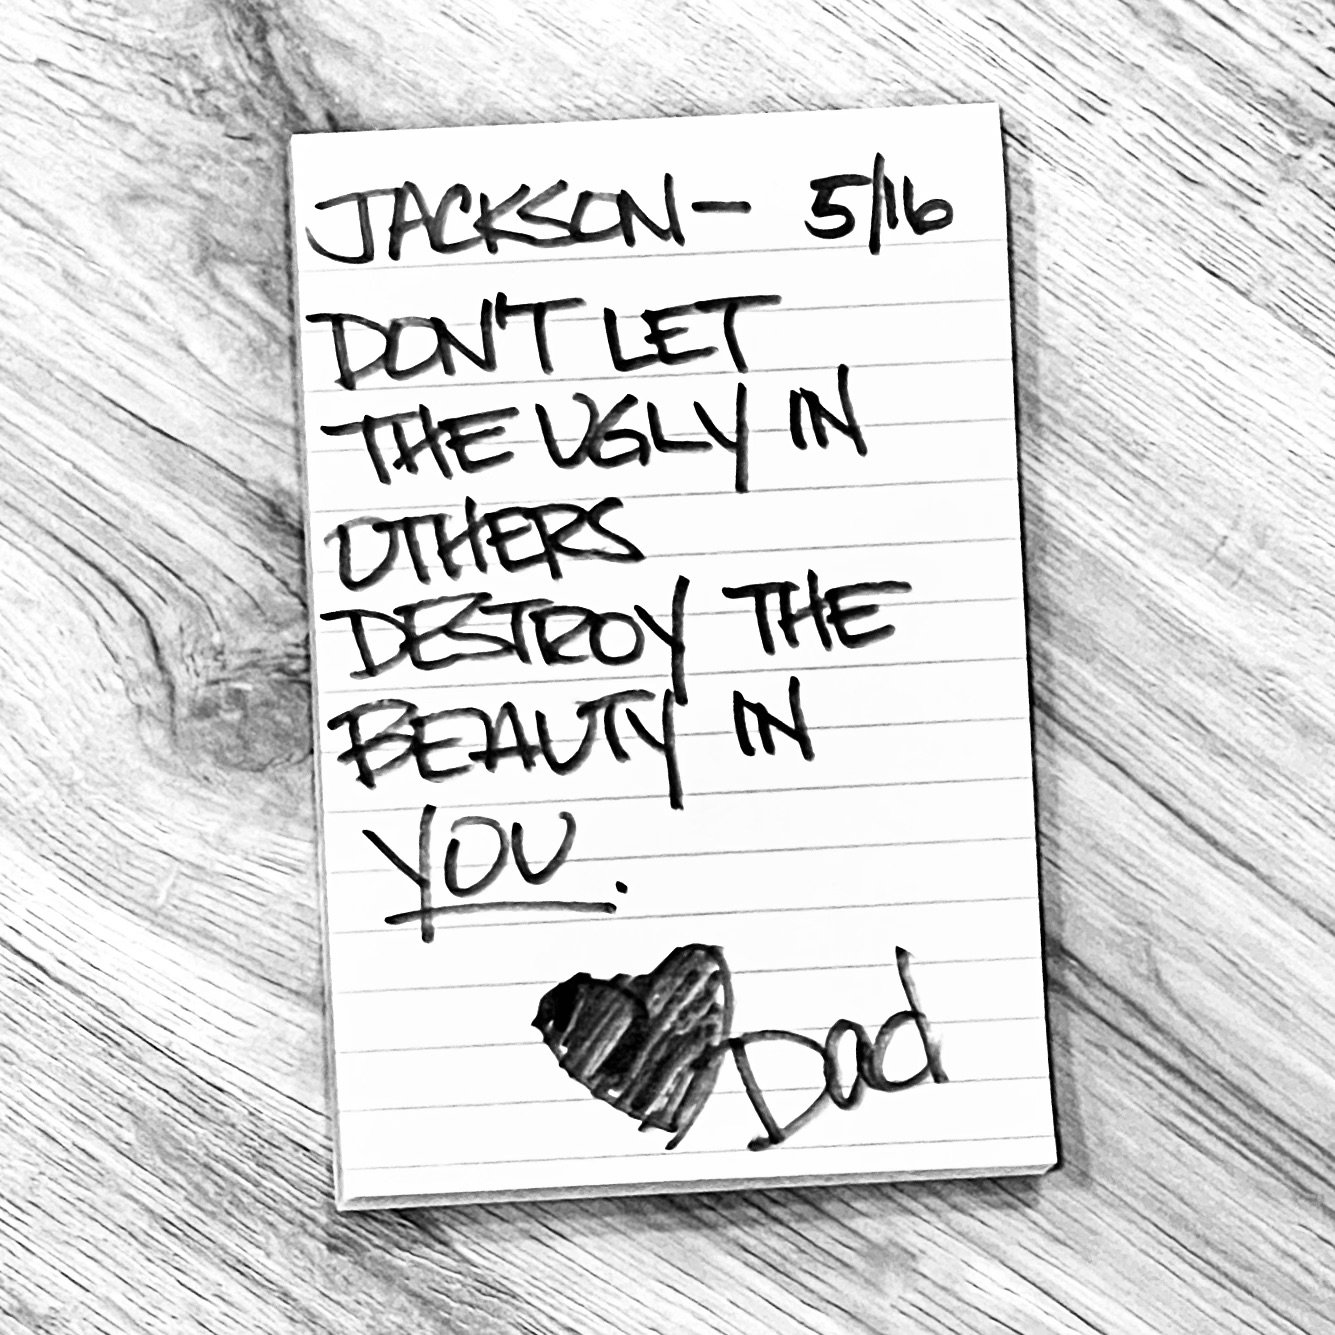 JACKSON- 5/16
DON'T LET
THE UGLY IN
OTHERS
DESTROY THE
BEAUTY IN
YOU.
Dad